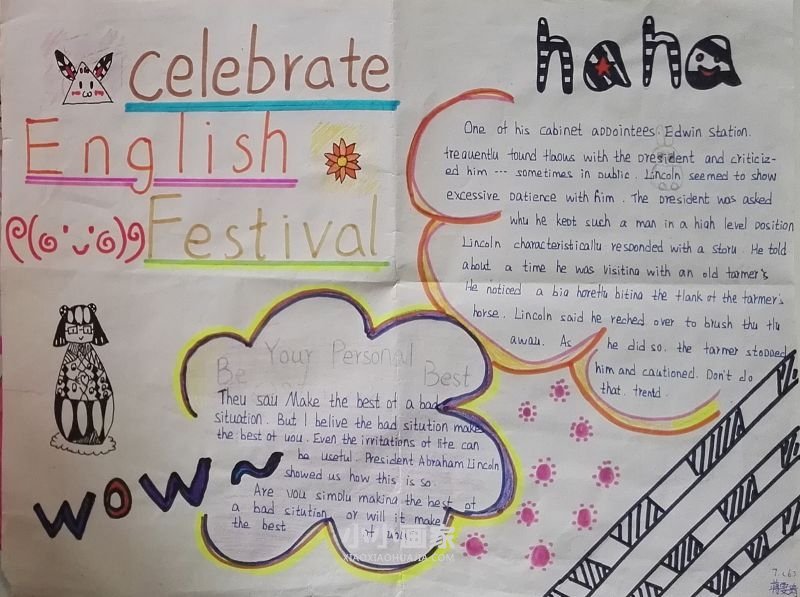 celebrate
English
Festival
haha
One of his cabinet addointees Edwin station.
frequently found flaous with the president and criticiz-
ed him ... sometimes in public. Lincoln seemed to show
excessive patience with him. The president was asked
why he kept such a man in a high level position
Lincoln characteristically responded with a story. He told
about a time he was visiting with an old farmer's
He noticed a big horefly biting the flank of the farmer's
horse. Lincoln said he reched over to brush thu flu
away. As he did so. the farmer stopped
him and cautioned. Don't do
that. frentd.
Your Personal
Be Best
They say Make the best of a bad
situation. But I belive the bad sitution make
the best of you. Even the irritations of life can
be useful. President Abraham Lincoln
showed us how this is so.
Are you simply making the best of
a bad sitution, or will it make
the best of you
wow~
小小画家
XIAOXIAOHUAJIA.COM